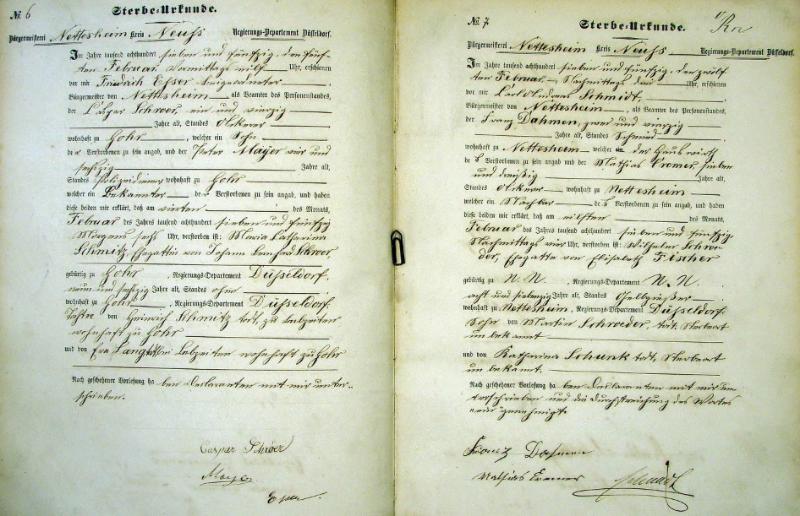 № 6
Sterbe-Urkunde.
Bürgermeisterei Nettesheim Kreis Neuss Regierungs-Departement Düsseldorf.
Im Jahre tausend achthundert sieben und fünfzig, den fünf-
ten Februar Vormittags elf Uhr, erschien
vor mir Friedrich Esser Beigeordneter,
Bürgermeister von Nettesheim, als Beamten des Personenstandes,
der Caspar Schroer, ein und vierzig
Jahre alt, Standes Ackerer
wohnhaft zu Gohr, welcher ein Sohn
der Verstorbenen zu sein angab, und der Peter Mayer vier und
sechszig Jahre alt,
Standes Polizeidiener wohnhaft zu Gohr
welcher ein Bekannter der Verstorbenen zu sein angab, und haben
diese beiden mir erklärt, daß am vierten des Monats,
Februar des Jahres tausend achthundert sieben und fünfzig
Morgens sechs Uhr, verstorben ist: Maria Catharina
Schmitz Ehegattin von Johann Schroer
gebürtig zu Gohr, Regierungs-Departement Düsseldorf,
neun und sechszig Jahre alt, Standes ohne
wohnhaft zu Gohr, Regierungs-Departement Düsseldorf
Tochter von Heinrich Schmitz todt, zu Lebzeiten
wohnhaft zu Gohr
und von Lebzeiten wohnhaft zu Gohr
Nach geschehener Vorlesung haben Declaranten mit mir unter-
schrieben.
Caspar Schröer
Mayer
Esser
№ 7.
Sterbe-Urkunde.
Bürgermeisterei Nettesheim Kreis Neuss Regierungs-Departement Düsseldorf.
Im Jahre tausend achthundert sieben und fünfzig, den zwölf-
ten Februar, Nachmittags Uhr, erschien
vor mir Carl Schmidt,
Bürgermeister von Nettesheim, als Beamten des Personenstandes,
der Franz Dahmen, zwei und vierzig
Jahre alt, Standes Schmied
wohnhaft zu Nettesheim welcher der
des Verstorbenen zu sein angab, und der Mathias Cremer, sieben
und dreißig Jahre alt,
Standes Ackerer wohnhaft zu Nettesheim
welcher ein Nachbar des Verstorbenen zu sein angab, und haben
diese beiden mir erklärt, daß am elften des Monats
Februar des Jahres tausend achthundert sieben und fünfzig
Nachmittags vier Uhr, verstorben ist: Wilhelm Schroe-
der, Ehegatte von Elisabeth Fischer
gebürtig zu N. N., Regierungs-Departement N. N.
acht und siebenzig Jahre alt, Standes
wohnhaft zu Nettesheim, Regierungs-Departement Düsseldorf
Sohn von Martin Schroeder, todt, Sterbeort
unbekannt
und von Katharina Schunk todt, Sterbeort
unbekannt.
Nach geschehener Vorlesung haben Declaranten mit mir un-
terschrieben und die Durchstreichung des Wortes
genehmigt.
Franz Dahmen
Mathias Cremer Schmidt